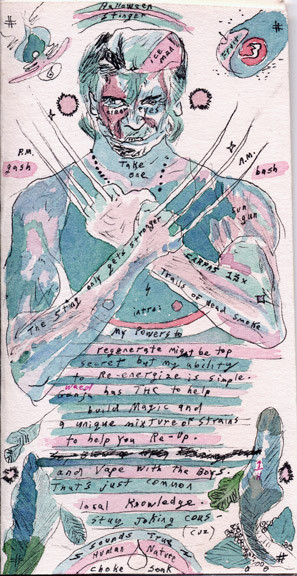 Halloween
Stinger
ICE
man
3
Tiger eyes
Take
one
R.M.
gash
A.M.
bash
Sun
gun
The Sting only gets stronger
Trails of Head Smoke
4
intro:
My Powers to
regenerate might be top
secret but my ability
to Re-energise is simple.
weed
has THC to help
build Magic and
a unique mixture of strains
to help you Re-Up.
and Vape with the Boys.
That's just common
local Knowledge.
stay Joking cous-
(cuz)
Sounds True
Human Nature
choke